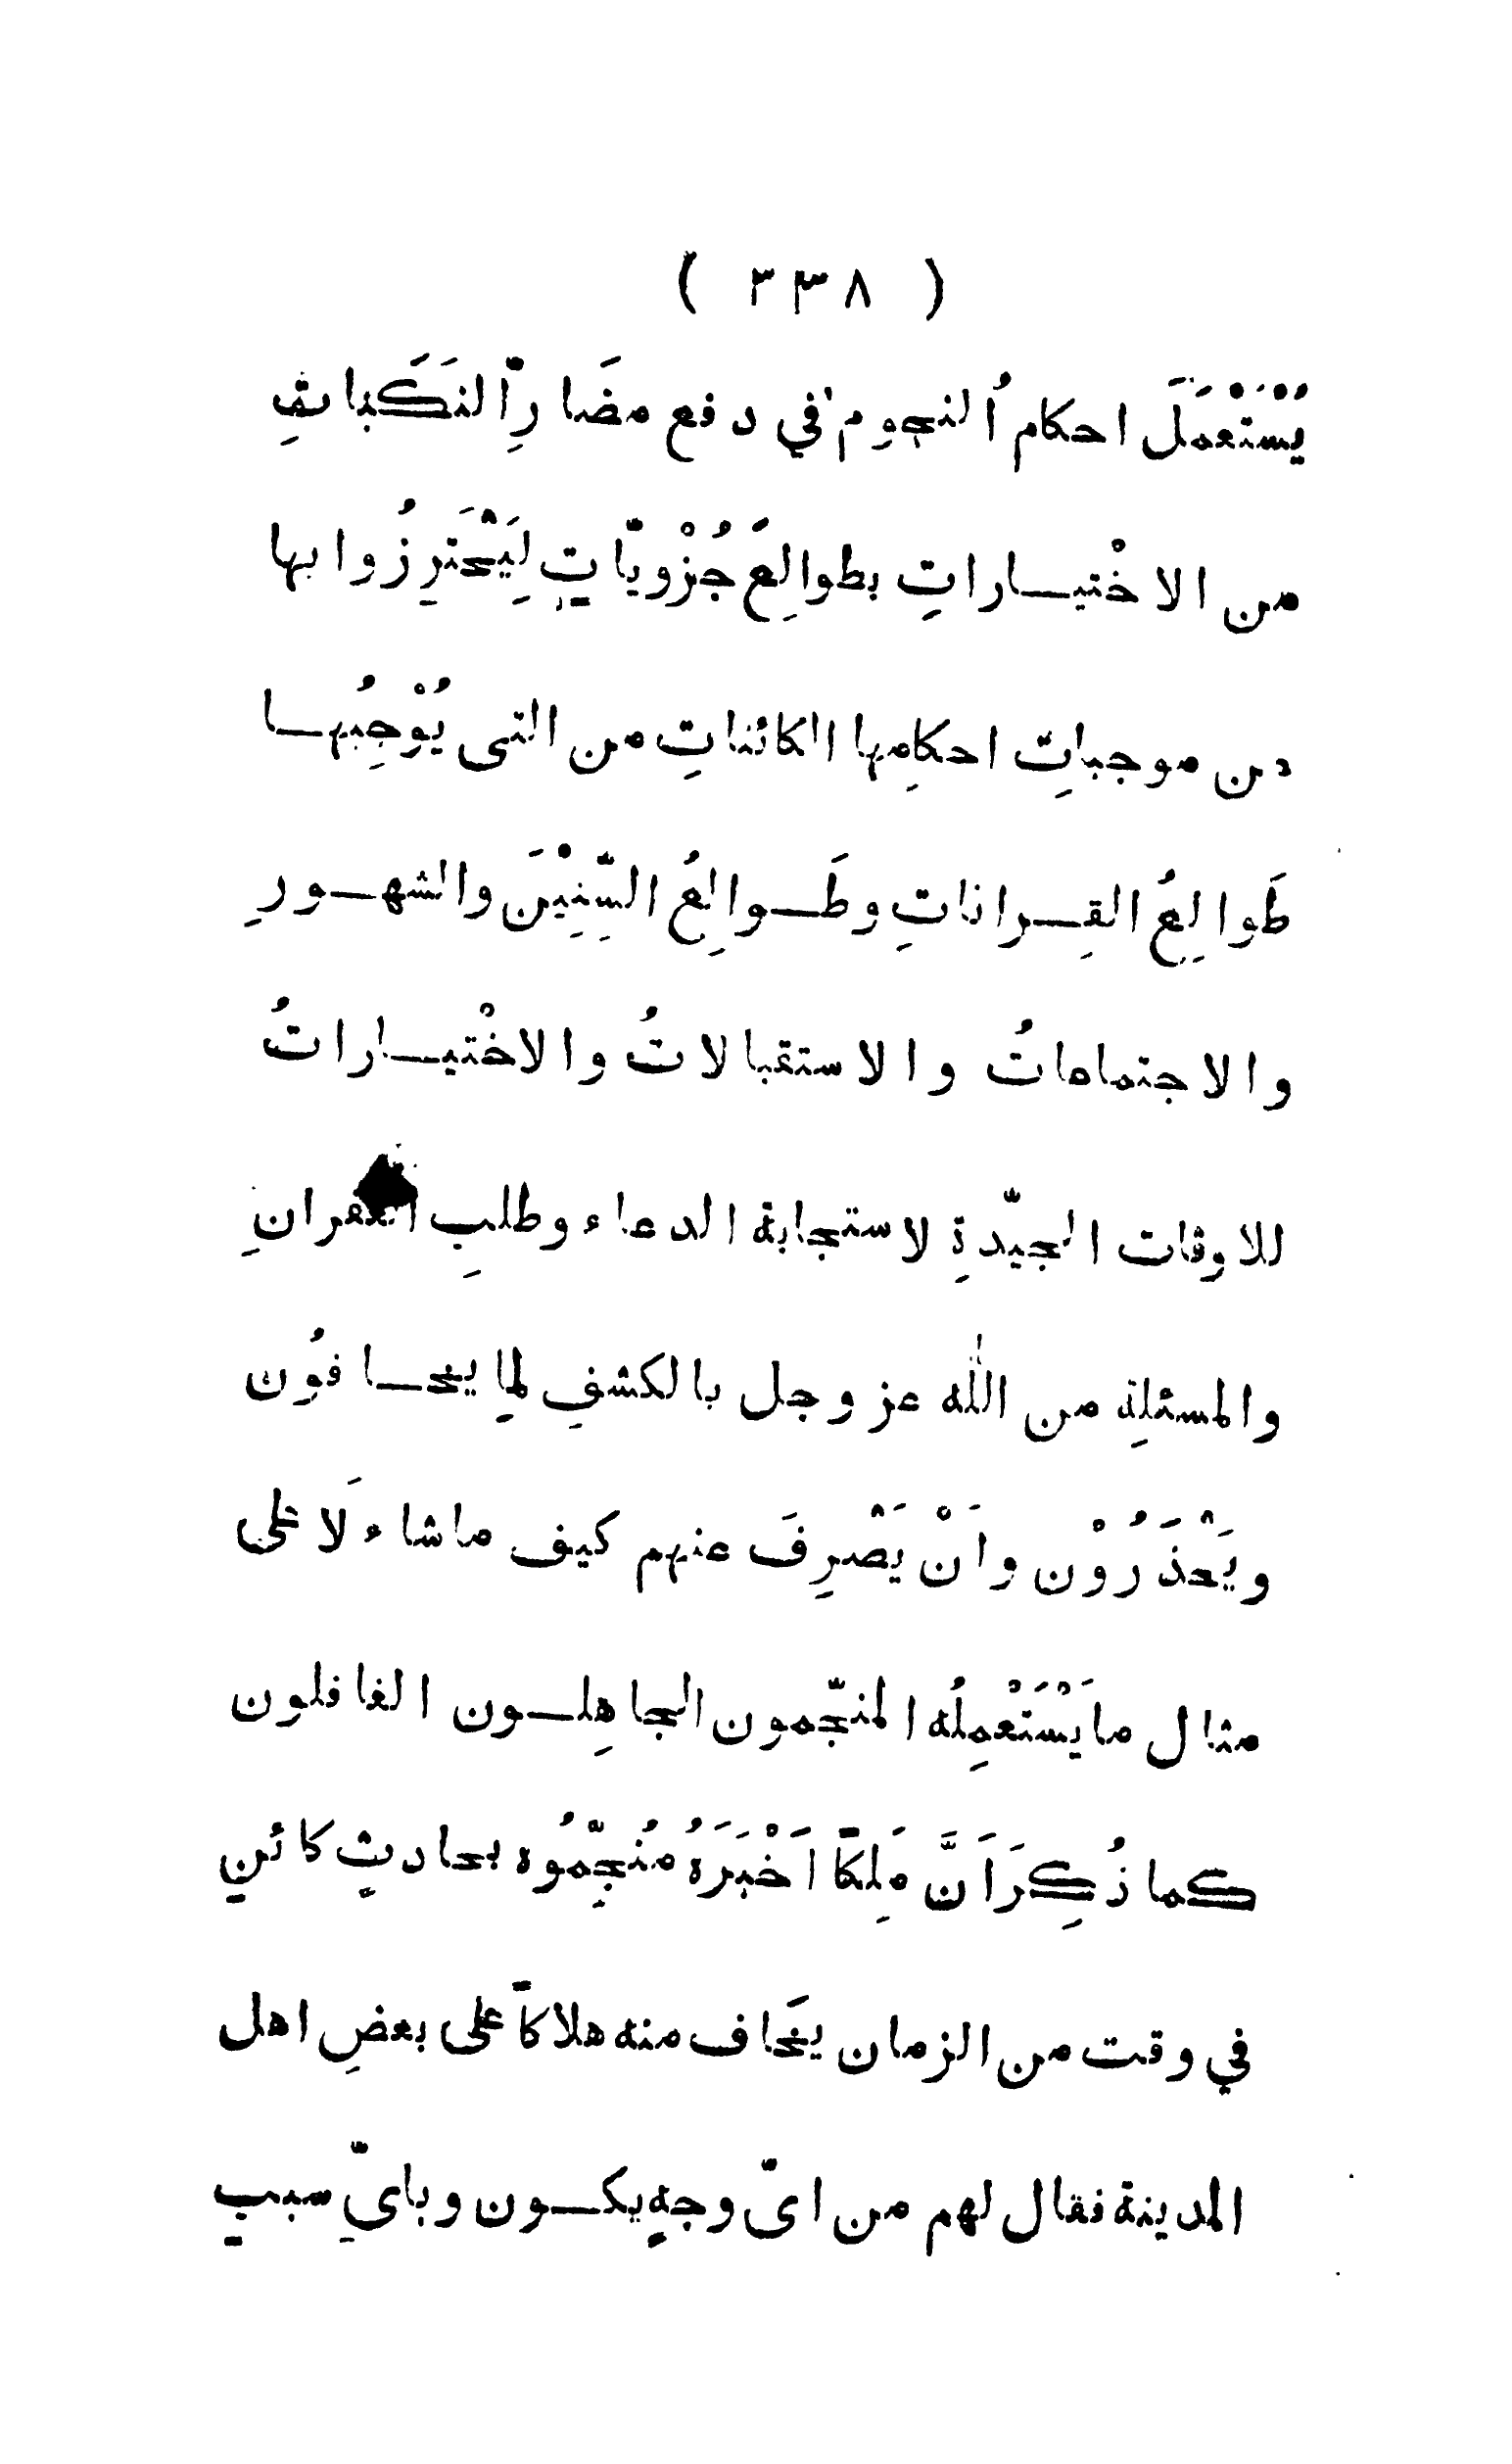 ( ٢٣٨ )
يُسْتَعْمَلَ احكام اُلنجوم في دفع مضَارِّ النَكَباتِ
من الاخْتيــاراتِ بطوالِعَ جُزْويّاتٍ لِيَحْتَرِزُوا بها
من موجباتِ احكامِها الكائناتِ من التى يُوْجِبُهــا
طَوالِعُ القِــراناتِ وطَــوالِعُ السِّنِيْنَ والشهــورِ
والاجتماعاتُ والاستقبالاتُ والاخْتيــاراتُ
للاوقات الجيّدةِ لاستجابة الدعاء وطلبِ الغفرانِ
والمسئلةِ من اللّٰه عز وجل بالكشفِ لِما يخــافُون
ويَحْذَرُوْن واَنْ يَصْرِفَ عنهم كيف ماشاء لَا على
مثال مايَسْتَعْمِلُه المنجّمون الجاهِلــون الغافلون
كما ذُكِرَ اَنَّ مَلِكًا اَخْبَرَهُ مُنَجِّمُوه بحادثٍ كائنٍ
في وقت من الزمان يخَاف منه هلاكًا على بعضِ اهل
المدينة فقال لهم من اىّ وجهٍ يكــون وبايِّ سببٍ